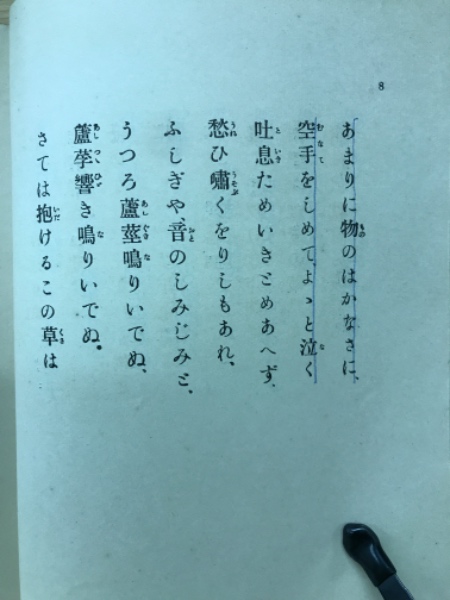 8
あまりに物のはかなさに、
空手をしめてよゝと泣く
吐息ためいきとめあへず、
愁ひ嘯くをりしもあれ、
ふしぎや、音のしみじみと、
うつろ蘆莖鳴りいでぬ、
蘆莩響き鳴りいでぬ。
さては抱けるこの草は